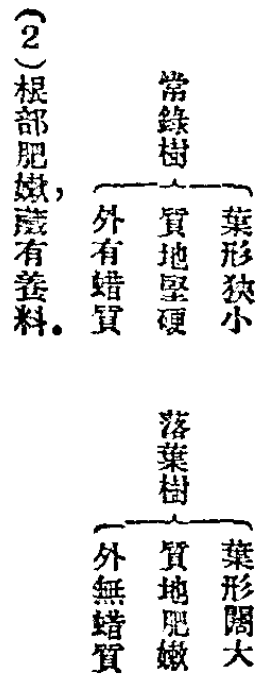 常錄樹
葉形狹小
質地堅硬
外有蜡質
落葉樹
葉形闊大
質地肥嫩
外無蜡質
(2)根部肥嫩,藏有養料.